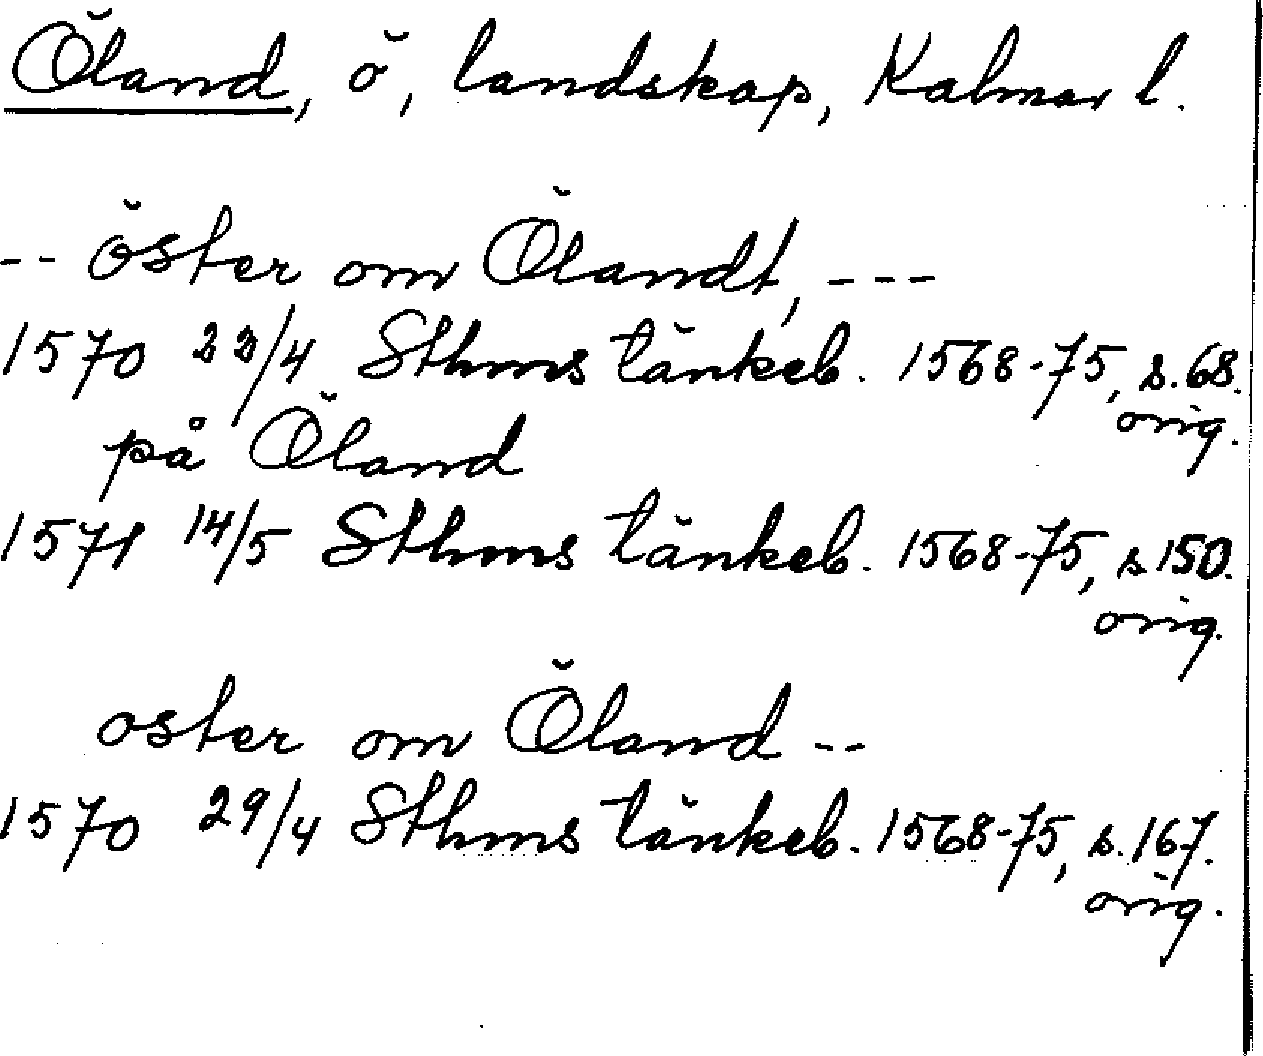 Öland, ö, landskap, Kalmar l.
-- öster om Ölandt, ---
1570 22/4 Sthms tänkeb. 1568-75, s. 68.
orig.
på Öland
1571 14/5 Sthms tänkeb. 1568-75, s 150.
orig.
oster om Öland --
1570 29/4 Sthms tänkeb. 1568-75, s. 167.
orig.